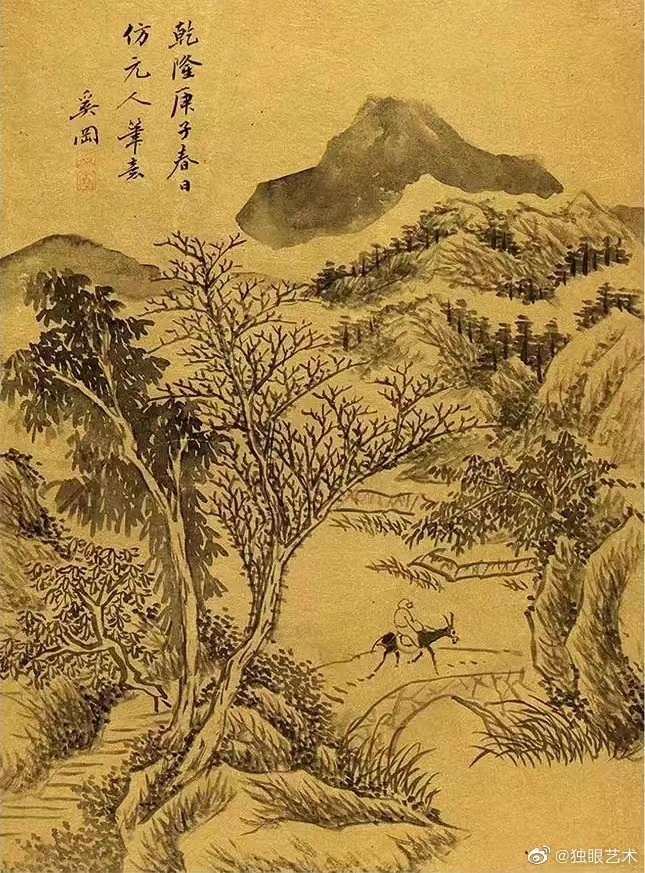 乾隆庚子春日
仿元人筆意
奚岡
@独眼艺术